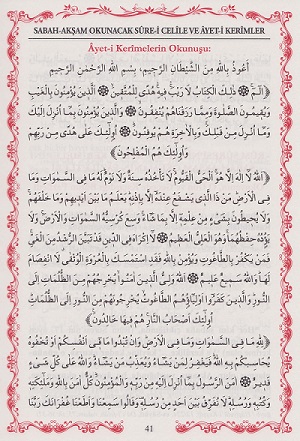 SABAH-AKŞAM OKUNACAK SÛRE-İ CELÎLE VE ÂYET-İ KERİMLER
Âyet-i Kerîmelerin Okunuşu:
أَعُوذُ بِاللّٰهِ مِنَ الشَّيْطَانِ الرَّجِيمِ، بِسْمِ اللّٰهِ الرَّحْمٰنِ الرَّحِيمِ
﴿الٓمٓ ۞ ذٰلِكَ الْكِتَابُ لَا رَيْبَ فِيهِ هُدًى لِلْمُتَّقِينَ ۞ اَلَّذِينَ يُؤْمِنُونَ بِالْغَيْبِ
وَيُقِيمُونَ الصَّلٰوةَ وَمِمَّا رَزَقْنَاهُمْ يُنْفِقُونَ ۞ وَالَّذِينَ يُؤْمِنُونَ بِمَا أُنْزِلَ إِلَيْكَ
وَمَا أُنْزِلَ مِنْ قَبْلِكَ وَبِالْاٰخِرَةِ هُمْ يُوقِنُونَ ۞ أُولٰئِكَ عَلٰى هُدًى مِنْ رَبِّهِمْ
وَأُولٰئِكَ هُمُ الْمُفْلِحُونَ﴾
﴿اَللّٰهُ لَا إِلٰهَ إِلَّا هُوَ الْحَيُّ الْقَيُّومُ لَا تَأْخُذُهُ سِنَةٌ وَلَا نَوْمٌ لَهُ مَا فِي السَّمٰوَاتِ وَمَا
فِي الْأَرْضِ مَنْ ذَا الَّذِي يَشْفَعُ عِنْدَهُ إِلَّا بِإِذْنِهِ يَعْلَمُ مَا بَيْنَ أَيْدِيهِمْ وَمَا خَلْفَهُمْ
وَلَا يُحِيطُونَ بِشَيْءٍ مِنْ عِلْمِهِ إِلَّا بِمَا شَاءَ وَسِعَ كُرْسِيُّهُ السَّمٰوَاتِ وَالْأَرْضَ وَلَا
يَؤُدُهُ حِفْظُهُمَا وَهُوَ الْعَلِيُّ الْعَظِيمُ ۞ لَا إِكْرَاهَ فِي الدِّينِ قَدْ تَبَيَّنَ الرُّشْدُ مِنَ الْغَيِّ
فَمَنْ يَكْفُرْ بِالطَّاغُوتِ وَيُؤْمِنْ بِاللّٰهِ فَقَدِ اسْتَمْسَكَ بِالْعُرْوَةِ الْوُثْقٰى لَا انْفِصَامَ
لَهَا وَاللّٰهُ سَمِيعٌ عَلِيمٌ ۞ اَللّٰهُ وَلِيُّ الَّذِينَ اٰمَنُوا يُخْرِجُهُمْ مِنَ الظُّلُمَاتِ إِلَى
النُّورِ وَالَّذِينَ كَفَرُوا أَوْلِيَاؤُهُمُ الطَّاغُوتُ يُخْرِجُونَهُمْ مِنَ النُّورِ إِلَى الظُّلُمَاتِ
أُولٰئِكَ أَصْحَابُ النَّارِ هُمْ فِيهَا خَالِدُونَ﴾
﴿لِلّٰهِ مَا فِي السَّمٰوَاتِ وَمَا فِي الْأَرْضِ وَإِنْ تُبْدُوا مَا فِي أَنْفُسِكُمْ أَوْ تُخْفُوهُ
يُحَاسِبْكُمْ بِهِ اللّٰهُ فَيَغْفِرُ لِمَنْ يَشَاءُ وَيُعَذِّبُ مَنْ يَشَاءُ وَاللّٰهُ عَلٰى كُلِّ شَيْءٍ
قَدِيرٌ ۞ اٰمَنَ الرَّسُولُ بِمَا أُنْزِلَ إِلَيْهِ مِنْ رَبِّهِ وَالْمُؤْمِنُونَ كُلٌّ اٰمَنَ بِاللّٰهِ وَمَلٰئِكَتِهِ
وَكُتُبِهِ وَرُسُلِهِ لَا نُفَرِّقُ بَيْنَ أَحَدٍ مِنْ رُسُلِهِ وَقَالُوا سَمِعْنَا وَأَطَعْنَا غُفْرَانَكَ رَبَّنَا
41